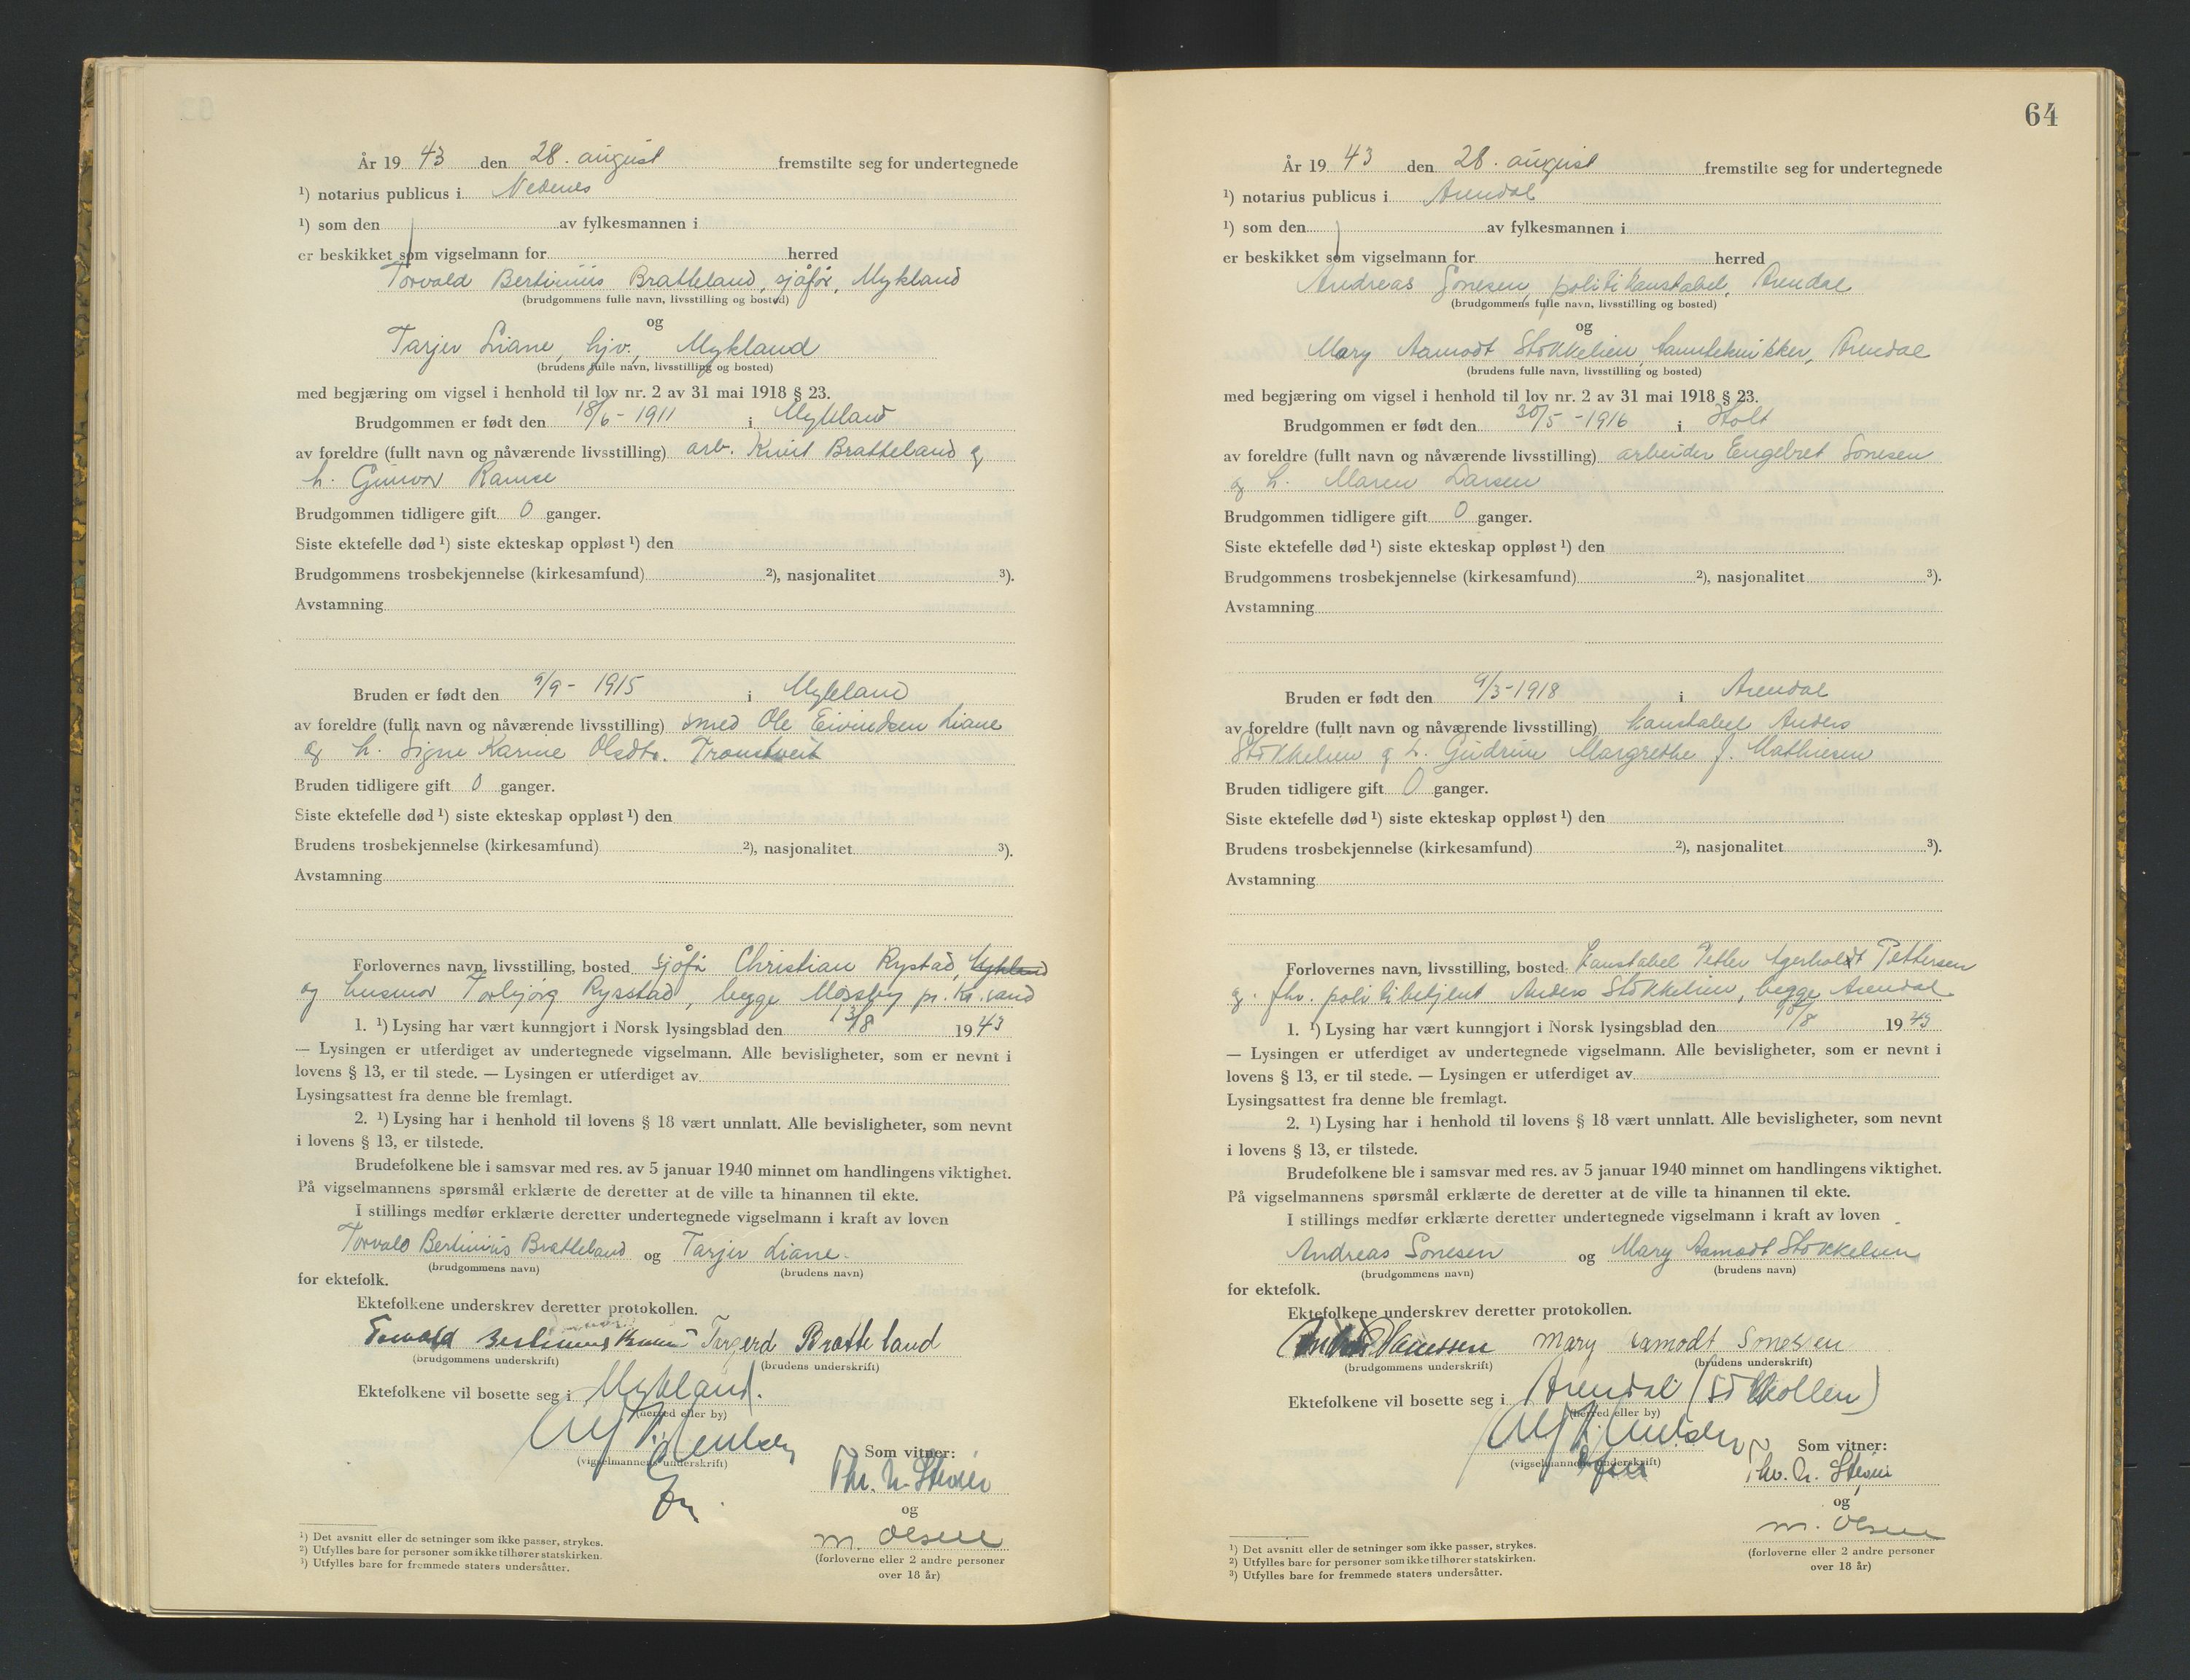 År 19 43 den 28. august fremstilte seg for undertegnede
¹) notarius publicus i Nedenes
¹) som den av fylkesmannen i
er beskikket som vigselmann for herred
Torvald Bertinius Bratteland, sjåfør, Mykland
(brudgommens fulle navn, livsstilling og bosted)
og
Tarjer Liane, hjv., Mykland
(brudens fulle navn, livsstilling og bosted)
med begjæring om vigsel i henhold til lov nr. 2 av 31 mai 1918 § 23.
Brudgommen er født den 18/6 - 1911 i Mykland
av foreldre (fullt navn og nåværende livsstilling) arb. Knut Bratteland og
h. Gunvor Ramse
Brudgommen tidligere gift 0 ganger.
Siste ektefelle død ¹) siste ekteskap oppløst ¹) den
Brudgommens trosbekjennelse (kirkesamfund) ²), nasjonalitet ³).
Avstamning
Bruden er født den 9/9 - 1915 i Mykland
av foreldre (fullt navn og nåværende livsstilling) smed Ole Eivindsen Liane
og h. Signe Karine Olsdtr.
Bruden tidligere gift 0 ganger.
Siste ektefelle død ¹) siste ekteskap oppløst ¹) den
Brudens trosbekjennelse (kirkesamfund) ²), nasjonalitet ³).
Avstamning
Forlovernes navn, livsstilling, bosted sjåfør Christian Rystad, Mykland
og husmor Torbjørg Rysstad, begge Mosby pr. Kr.sand
1. ¹) Lysing har vært kunngjort i Norsk lysingsblad den 13/8 19 43
— Lysingen er utferdiget av undertegnede vigselmann. Alle bevisligheter, som er nevnt i
lovens § 13, er til stede. — Lysingen er utferdiget av
Lysingsattest fra denne ble fremlagt.
2. ¹) Lysing har i henhold til lovens § 18 vært unnlatt. Alle bevisligheter, som nevnt
i lovens § 13, er tilstede.
Brudefolkene ble i samsvar med res. av 5 januar 1940 minnet om handlingens viktighet.
På vigselmannens spørsmål erklærte de deretter at de ville ta hinannen til ekte.
I stillings medfør erklærte deretter undertegnede vigselmann i kraft av loven
Torvald Bertinius Bratteland og Tarjer Liane.
(brudgommens navn) (brudens navn)
for ektefolk.
Ektefolkene underskrev deretter protokollen.
Torvald Bertinius Targerd Bratteland
(brudgommens underskrift) (brudens underskrift)
Ektefolkene vil bosette seg i Mykland.
(herred eller by)
(vigselmannens underskrift)
Som vitner:
Thv. N.
og
M. Olsen
(forloverne eller 2 andre personer
over 18 år)
¹) Det avsnitt eller de setninger som ikke passer, strykes.
²) Utfylles bare for personer som ikke tilhører statskirken.
³) Utfylles bare for fremmede staters undersåtter.
64
År 19 43 den 28. august fremstilte seg for undertegnede
¹) notarius publicus i Arendal
¹) som den av fylkesmannen i
er beskikket som vigselmann for herred
Andreas Sonesen, politikonstabel, Arendal
(brudgommens fulle navn, livsstilling og bosted)
og
Mary Aamodt Stokkelien, tanntekniker, Arendal
(brudens fulle navn, livsstilling og bosted)
med begjæring om vigsel i henhold til lov nr. 2 av 31 mai 1918 § 23.
Brudgommen er født den 30/5 - 1916 i Holt
av foreldre (fullt navn og nåværende livsstilling) arbeider Engebret Sonesen
og h. Maren Larsen
Brudgommen tidligere gift 0 ganger.
Siste ektefelle død ¹) siste ekteskap oppløst ¹) den
Brudgommens trosbekjennelse (kirkesamfund) ²), nasjonalitet ³).
Avstamning
Bruden er født den 9/3 - 1918 i Arendal
av foreldre (fullt navn og nåværende livsstilling) konstabel Anders
Stokkelien og h. Gudrun Margrethe J. Mathiesen
Bruden tidligere gift 0 ganger.
Siste ektefelle død ¹) siste ekteskap oppløst ¹) den
Brudens trosbekjennelse (kirkesamfund) ²), nasjonalitet ³).
Avstamning
Forlovernes navn, livsstilling, bosted. konstabel Petter Agerholdt Pettersen
og fhv. politibetjent Anders Stokkelien, begge Arendal
1. ¹) Lysing har vært kunngjort i Norsk lysingsblad den 19 43
— Lysingen er utferdiget av undertegnede vigselmann. Alle bevisligheter, som er nevnt i
lovens § 13, er til stede. — Lysingen er utferdiget av
Lysingsattest fra denne ble fremlagt.
2. ¹) Lysing har i henhold til lovens § 18 vært unnlatt. Alle bevisligheter, som nevnt
i lovens § 13, er tilstede.
Brudefolkene ble i samsvar med res. av 5 januar 1940 minnet om handlingens viktighet.
På vigselmannens spørsmål erklærte de deretter at de ville ta hinannen til ekte.
I stillings medfør erklærte deretter undertegnede vigselmann i kraft av loven
Andreas Sonesen og Mary Aamodt Stokkelien
(brudgommens navn) (brudens navn)
for ektefolk.
Ektefolkene underskrev deretter protokollen.
Mary Aamodt Sonesen
(brudgommens underskrift) (brudens underskrift)
Ektefolkene vil bosette seg i Arendal
(herred eller by)
(vigselmannens underskrift)
Som vitner:
Thv. N.
og
M. Olsen
(forloverne eller 2 andre personer
over 18 år)
¹) Det avsnitt eller de setninger som ikke passer, strykes.
²) Utfylles bare for personer som ikke tilhører statskirken.
³) Utfylles bare for fremmede staters undersåtter.